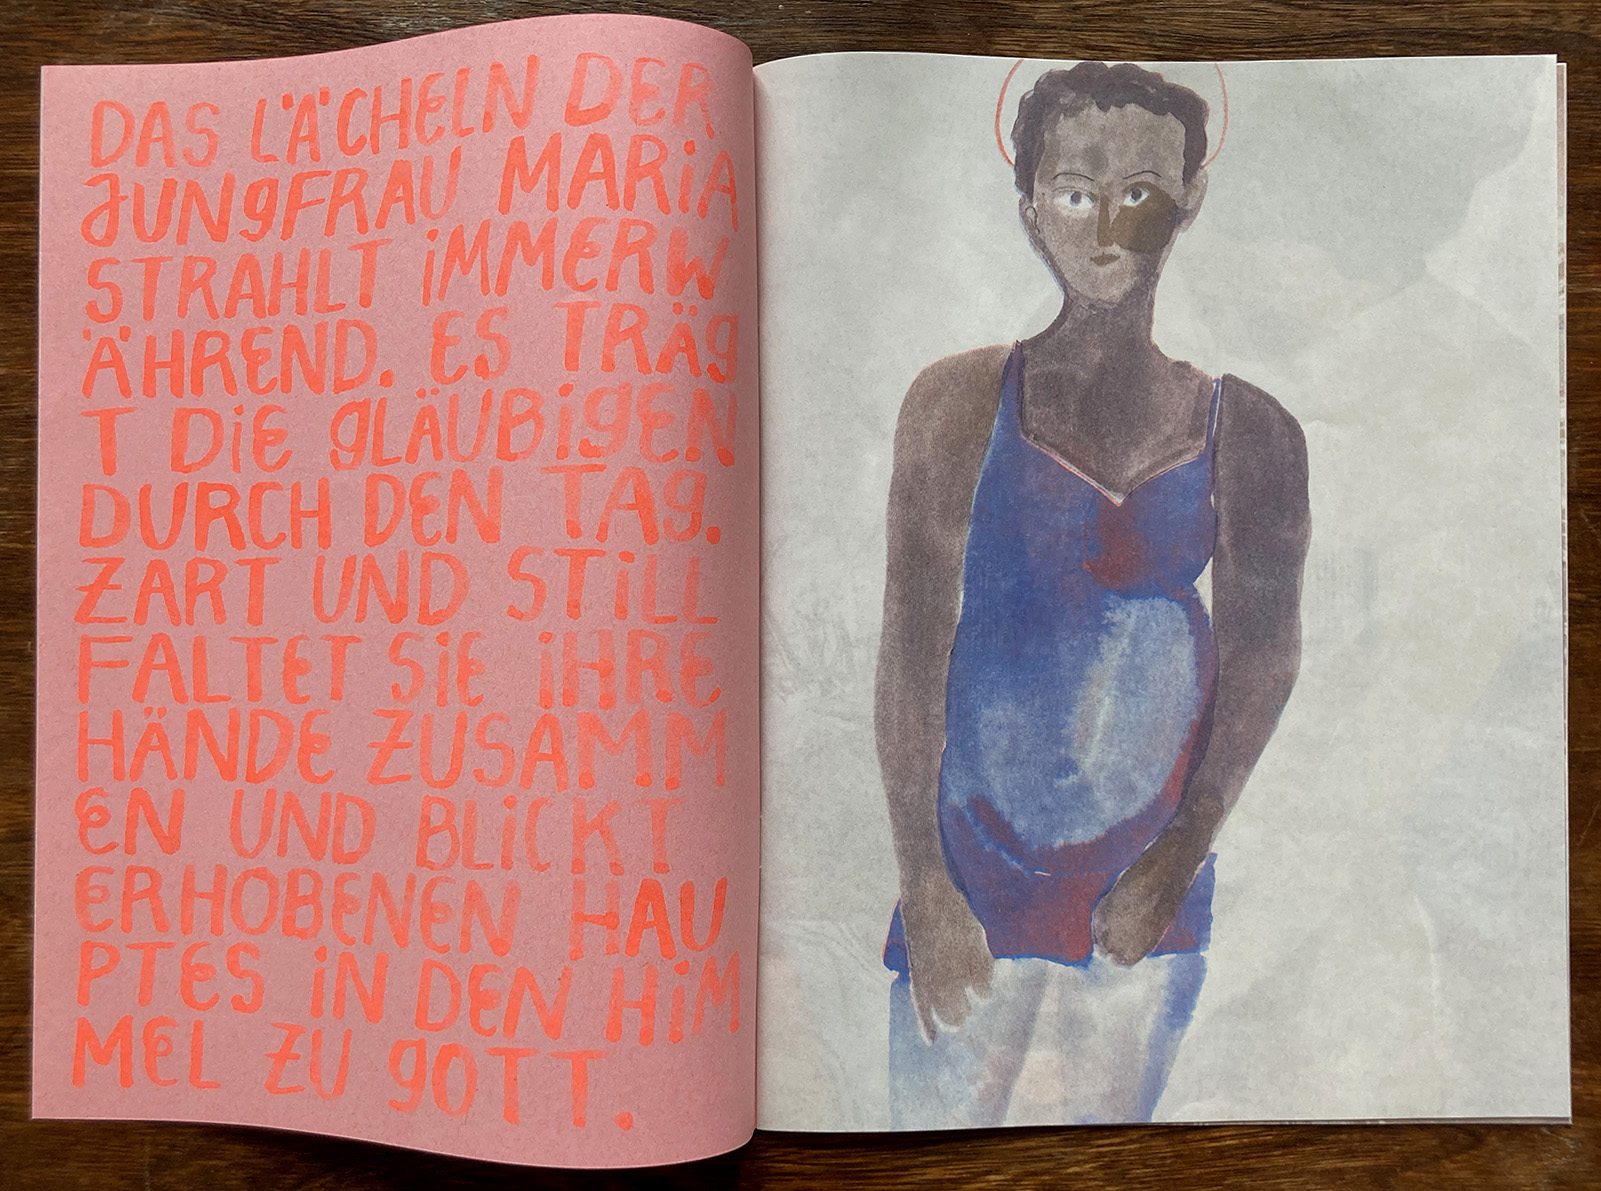 DAS LÄCHELN DER
JUNGFRAU MARiA
STRAHLT iMMERW
ÄHREND. ES TRÄG
T DiE GLÄUBiGEN
DURCH DEN TAG.
ZART UND STiLL
FALTET SiE iHRE
HÄNDE ZUSAMM
EN UND BLiCKT
ERHOBENEN HAU
PTES iN DEN HiM
MEL ZU GOTT.